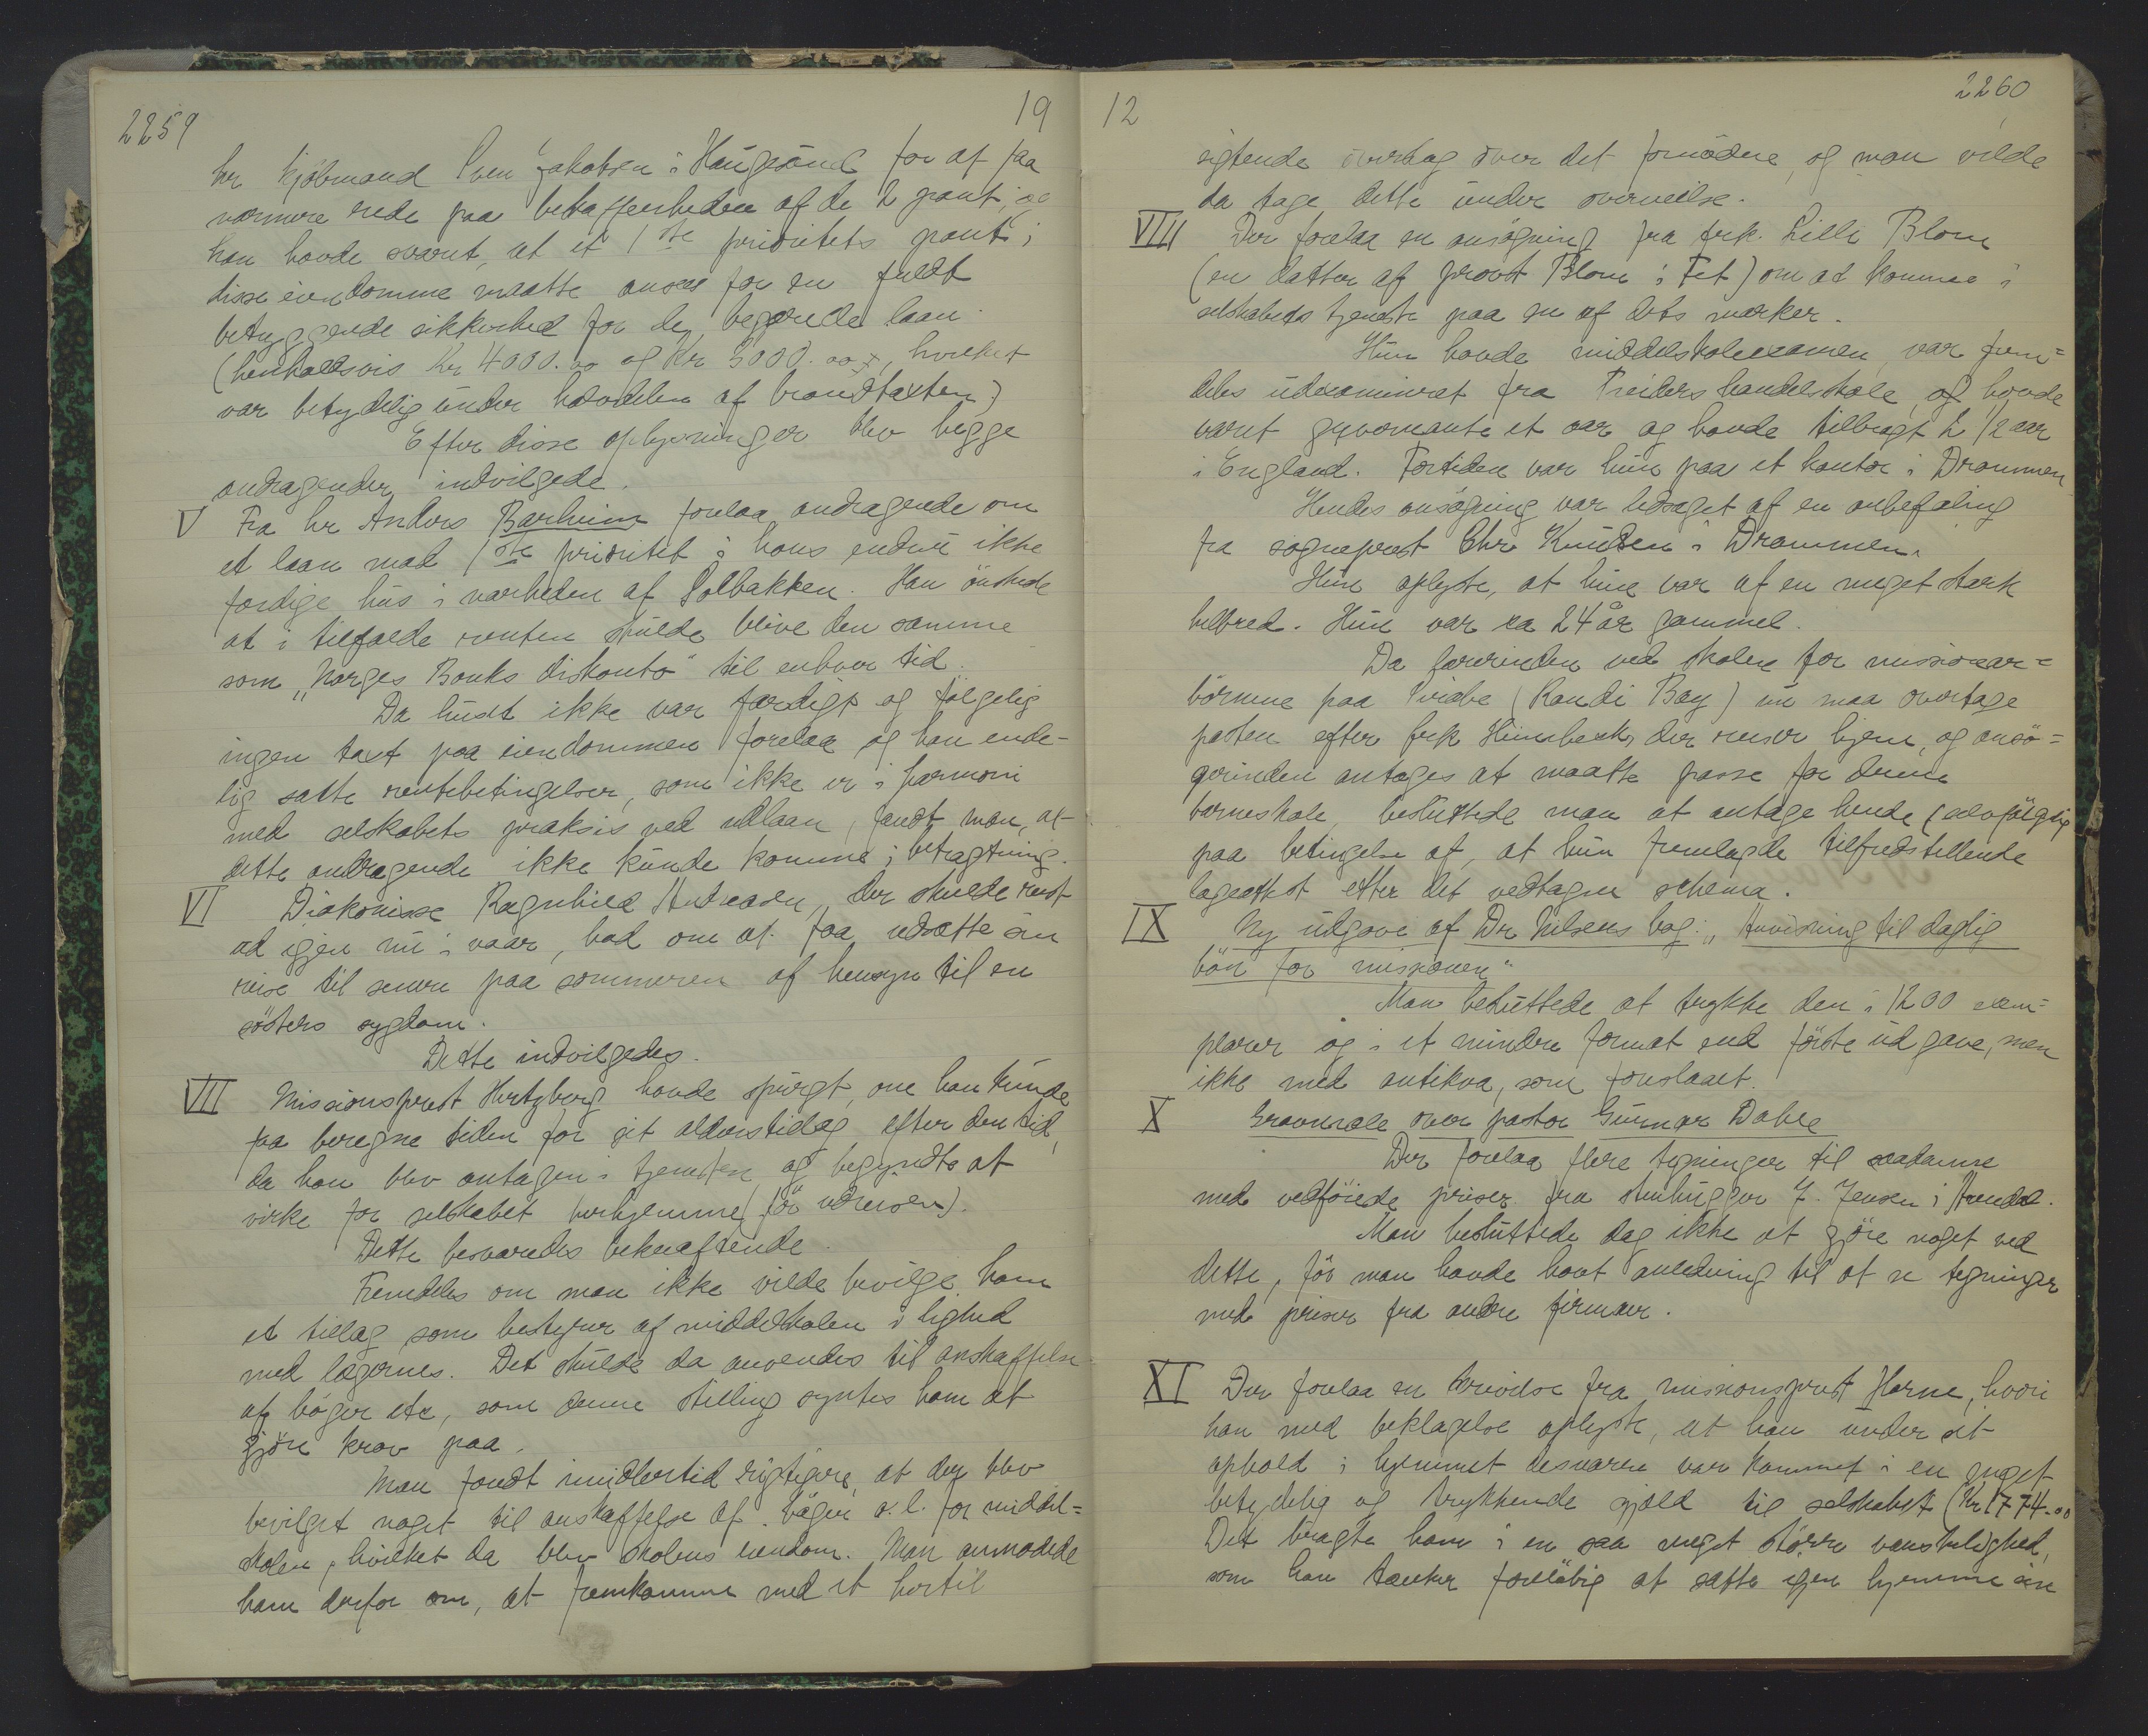 2259
19
hr kjöbmand Sven Jakobsen i Haugesund for at faa
nærmere rede paa beskaffenheden af de 2 pant, og
han havde svaret, at et 1ste prioritets pant i
disse eiendomme maatte ansees for en fuldt
betryggende sikkerhed for de begjærede laan.
(henholdsvis Kr 4000.00 og Kr 5000.00, hvilket
var betydelig under halvdelen af brandtaxten.)
Efter disse oplysninger blev begge
andragender indvilgede.
V Fra hr Anders Barheim forelaa andragende om
et laan mod 1ste prioritet i hans endnu ikke
færdige hus i nærheden af Solbakken. Han önskede
at i tilfælde renten skulde blive den samme
som „Norges Banks diskonto" til enhver tid.
Da huset ikke var færdigt og fölgelig
ingen taxt paa eiendommen forelaa og han ende-
lig satte rentebetingelser, som ikke er i harmoni
med selskabets praksis ved udlaan, fandt man, at
dette andragende ikke kunde komme i betragtning.
VI Diakonisse Ragnhild Andreasen, der skulde reist
ud igjen nu i vaar, bad om at faa udsætte sin
reise til senere paa sommeren af hensyn til en
sösters sygdom.
Dette indvilgedes.
VII Missionsprest Hertzberg havde spurgt, om han kunde
faa beregne tiden for sit alderstillæg efter den tid,
da han blev antagen i tjenesten og begyndte at
virke for selskabet herhjemme (för udreisen).
Dette besvaredes bekræftende.
Fremdeles om man ikke vilde bevilge ham
et tillæg som bestyrer af middelskolen i lighed
med lægernes. Det skulde da anvendes til anskaffelse
af böger etc, som denne stilling syntes ham at
gjöre krav paa.
Man fandt imidlertid rigtigere, at der blev
bevilget noget til anskaffelse af böger o.l. for middel=
skolen, hvilket da blev skolens eiendom. Man anmodede
ham derfor om, at fremkomme med et hertil
12
2260
sigtende overslag over det fornödne, og man vilde
da tage dette under overveielse.
VIII Der forelaa en ansögning fra frk. Lilli Blom
(en datter af provst Blom i Fet) om at komme i
selskabets tjeneste paa en af dets marker.
Hun havde middelskoleexamen, var frem=
deles udexamineret fra Treiders handelsskole, og havde
været guvernante et aar og havde tilbragt 2 1/2 aar
i England. Fortiden var hun paa et kontor i Drammen
Hendes ansögning var ledsaget af en anbefaling
fra sogneprest Chr Knudsen i Drammen.
Hun oplyste, at hun var af en meget stærk
helbred. Hun var ca 24 år gammel.
Da lærerinden ved skolen for missionær=
börnene paa (Randi Bay) nu maa overtage
posten efter frk der reiser hjem, og ansö=
gerinden antages at maatte passe for denne
barneskole, besluttede man at antage hende (selvfölgelig
paa betingelse af, at hun fremlagde tilfredsstillende
lægeattest efter det vedtagne schema.
IX Ny udgave af Dr Nilsens bog: „Anvisning til daglig
bön for missionen"
Man besluttede at trykke den i 1200 exem=
plarer og i et mindre format end förste udgave, men
ikke med antikva, som foreslaaet.
X Gravmæle over pastor Gunnar Dahle
Der forelaa flere tegninger til saadanne
med vedföiede priser fra stenhugger J. Jensen i Arendal.
Man besluttede dog ikke at gjöre noget ved
dette, för man havde havt anledning til at se tegninger
med priser fra andre firmaer.
XI Der forelaa en skrivelse fra missionsprest Horne, hvori
han med beklagelse oplyste, at han under sit
ophold i hjemmet desværre var kommet i en meget
betydelig og trykkende gjæld til selskabet (Kr 1774.00
Det bragte ham i en saa meget större vanskelighed,
som han tænker forelöbig at sætte igjen hjemme sin